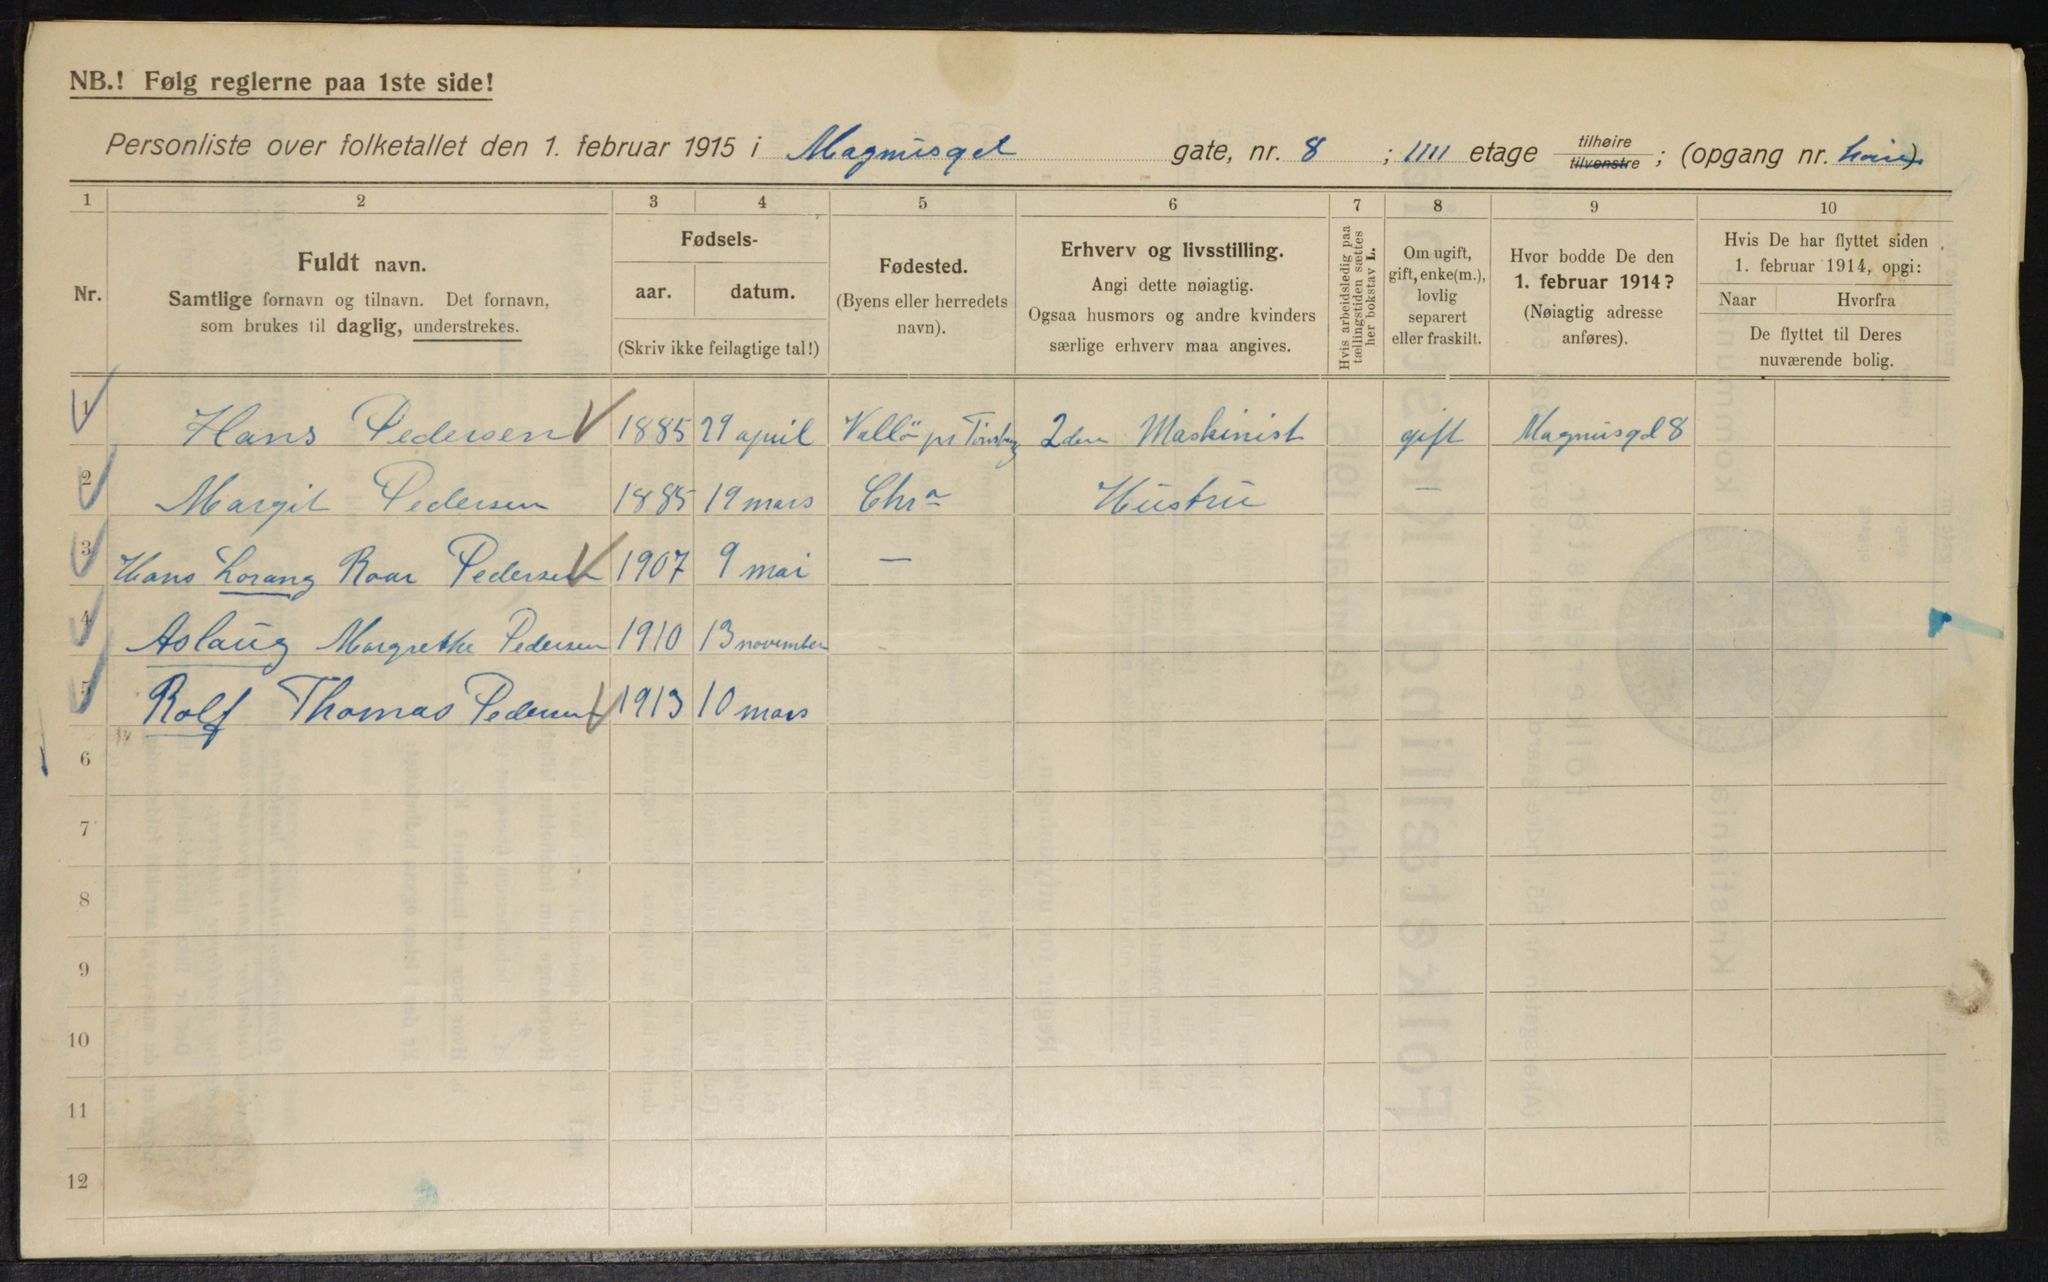 NB.! Følg reglerne paa 1ste side!
Personliste over folketallet den 1. februar 1915 i Magnusgt gate, nr. 8 ; IIII etage tilhøire tilvenstre ; (opgang nr. )
1 2 3 4 5 6 7 8 9 10
Nr.
Fuldt navn.
Samtlige fornavn og tilnavn. Det fornavn,
som brukes til daglig, understrekes.
Fødsels-
aar. datum.
(Skriv ikke feilagtige tal!)
Fødested.
(Byens eller herredets
navn).
Erhverv og livsstilling.
Angi dette nøiagtig.
Ogsaa husmors og andre kvinders
særlige erhverv maa angives.
Hvis arbeidsledig paa
tællingstiden sættes
her bokstav L.
Om ugift,
gift, enke(m.),
lovlig
separert
eller fraskilt.
Hvor bodde De den
1. februar 1914?
(Nøiagtig adresse
anføres).
Hvis De har flyttet siden
1. februar 1914, opgi:
Naar Hvorfra
De flyttet til Deres
nuværende bolig.
1 Hans Pedersen 1885 29 april Vallö pr Tönsberg 2den Maskinist gift Magnusgd 8
2 Margit Pedersen 1885 19 mars Chra Hustru —
3 Hans Lorang Roar Pedersen 1907 9 mai —
4 Aslaug Margrethe Pedersen 1910 13 november
5 Rolf Thomas Pedersen 1913 10 mars
6
7
8
9
10
11
12